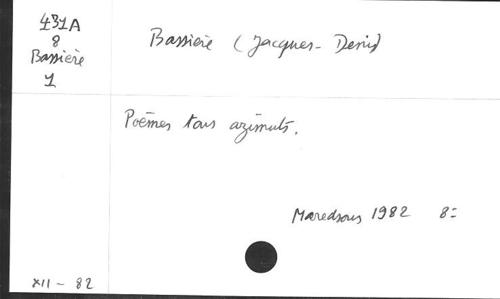 431A
8
Bassière
1
Bassière (Jacques-Denis)
Poèmes tous azimuts.
Maredsous 1982 8=
XII - 82